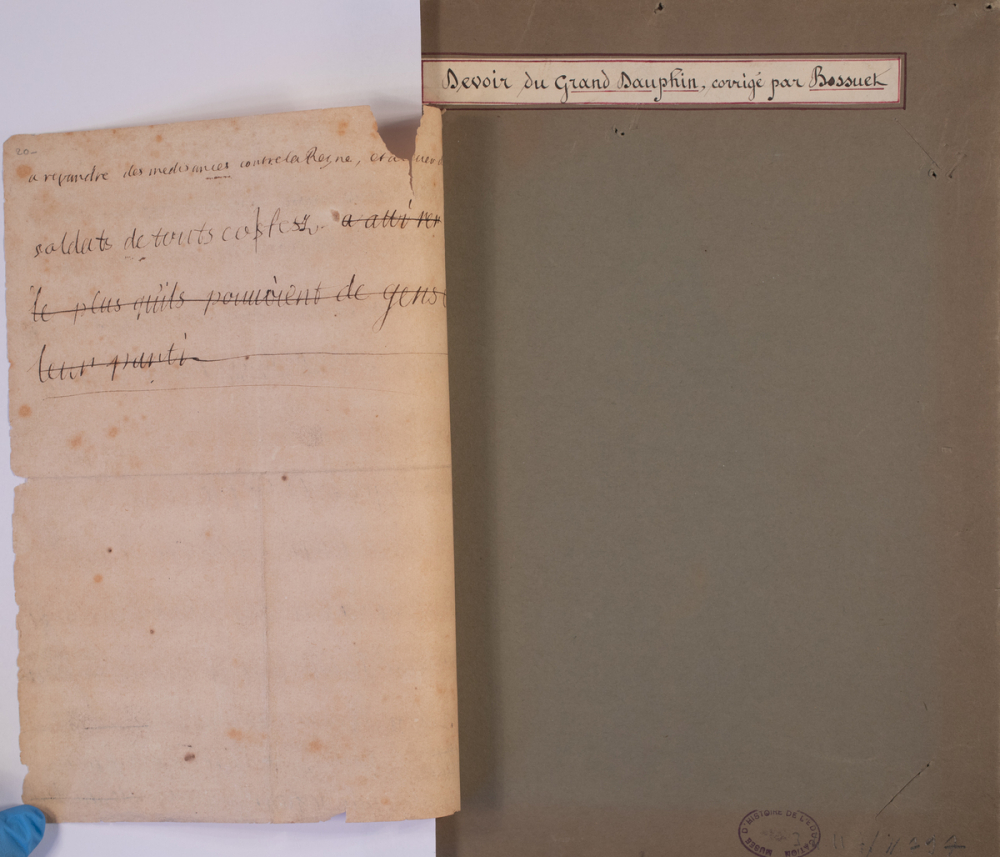 Devoir du Grand Dauphin, corrigé par Bossuet
20
a répandre des medisances contre la Reyne, et a
soldats de touts costes, a attirer
le plus qu'ils pouuoient de gens
leur parti
MUSÉE D'HISTOIRE DE L'EDUCATION